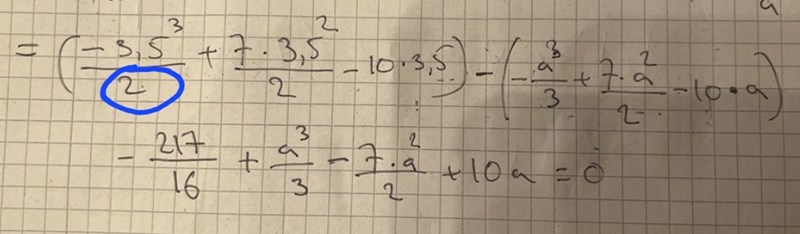 = (-3,5³/2 + 7·3,5²/2 - 10·3,5) - (-a³/3 + 7·a²/2 - 10·a)
- 217/16 + a³/3 - 7·a²/2 + 10a = 0